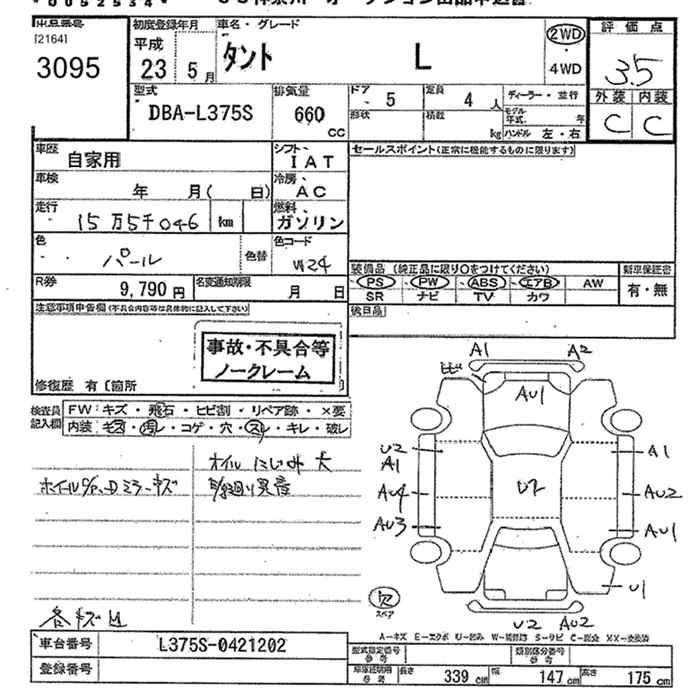 *0052534*
[2164]
3095
初度登録年月
平成
23 5月
車名・グレード
タント L
2WD
4WD
評価点
3.5
外装 内装
C C
型式
DBA-L375S
排気量
660
CC
ドア
5
定員
4人
形状
積載
kg
ディーラー・並行
モデル年式 年
ハンドル 左・右
車歴
自家用
シフト
IAT
車検
年 月( 日)
冷房
AC
走行
15万5千046 km
燃料
ガソリン
色
パール
色替
色コード
W24
R券
9,790円
名変通知期限
月 日
セールスポイント(正常に機能するものに限ります)
装備品 (純正品に限り○をつけてください)
PS PW ABS エアB AW
SR ナビ TV カワ
新車保証書
有・無
後日品
注意事項申告欄(不具合内容等は具体的に記入して下さい)
事故・不具合等
ノークレーム
修復歴 有〔箇所
検査員
記入欄
FW:キズ・飛石・ヒビ割・リペア跡・×要
内装:キズ・汚レ・コゲ・穴・スレ・キレ・破レ
オイルにじみ大
各キズ凹
A1 A2
AU1
U2
A1
AU4
AU3
U2
A1
AU2
AU1
U1
U2 AU2
欠
スペア
A-キズ E-エクボ U-凹み W-補修跡 S-サビ C-腐食 XX-交換済
車台番号
L375S-0421202
登録番号
型式指定番号
参考
類別区分番号
参考
車庫証明用
参考
長さ 339cm
幅 147cm
高さ 175cm